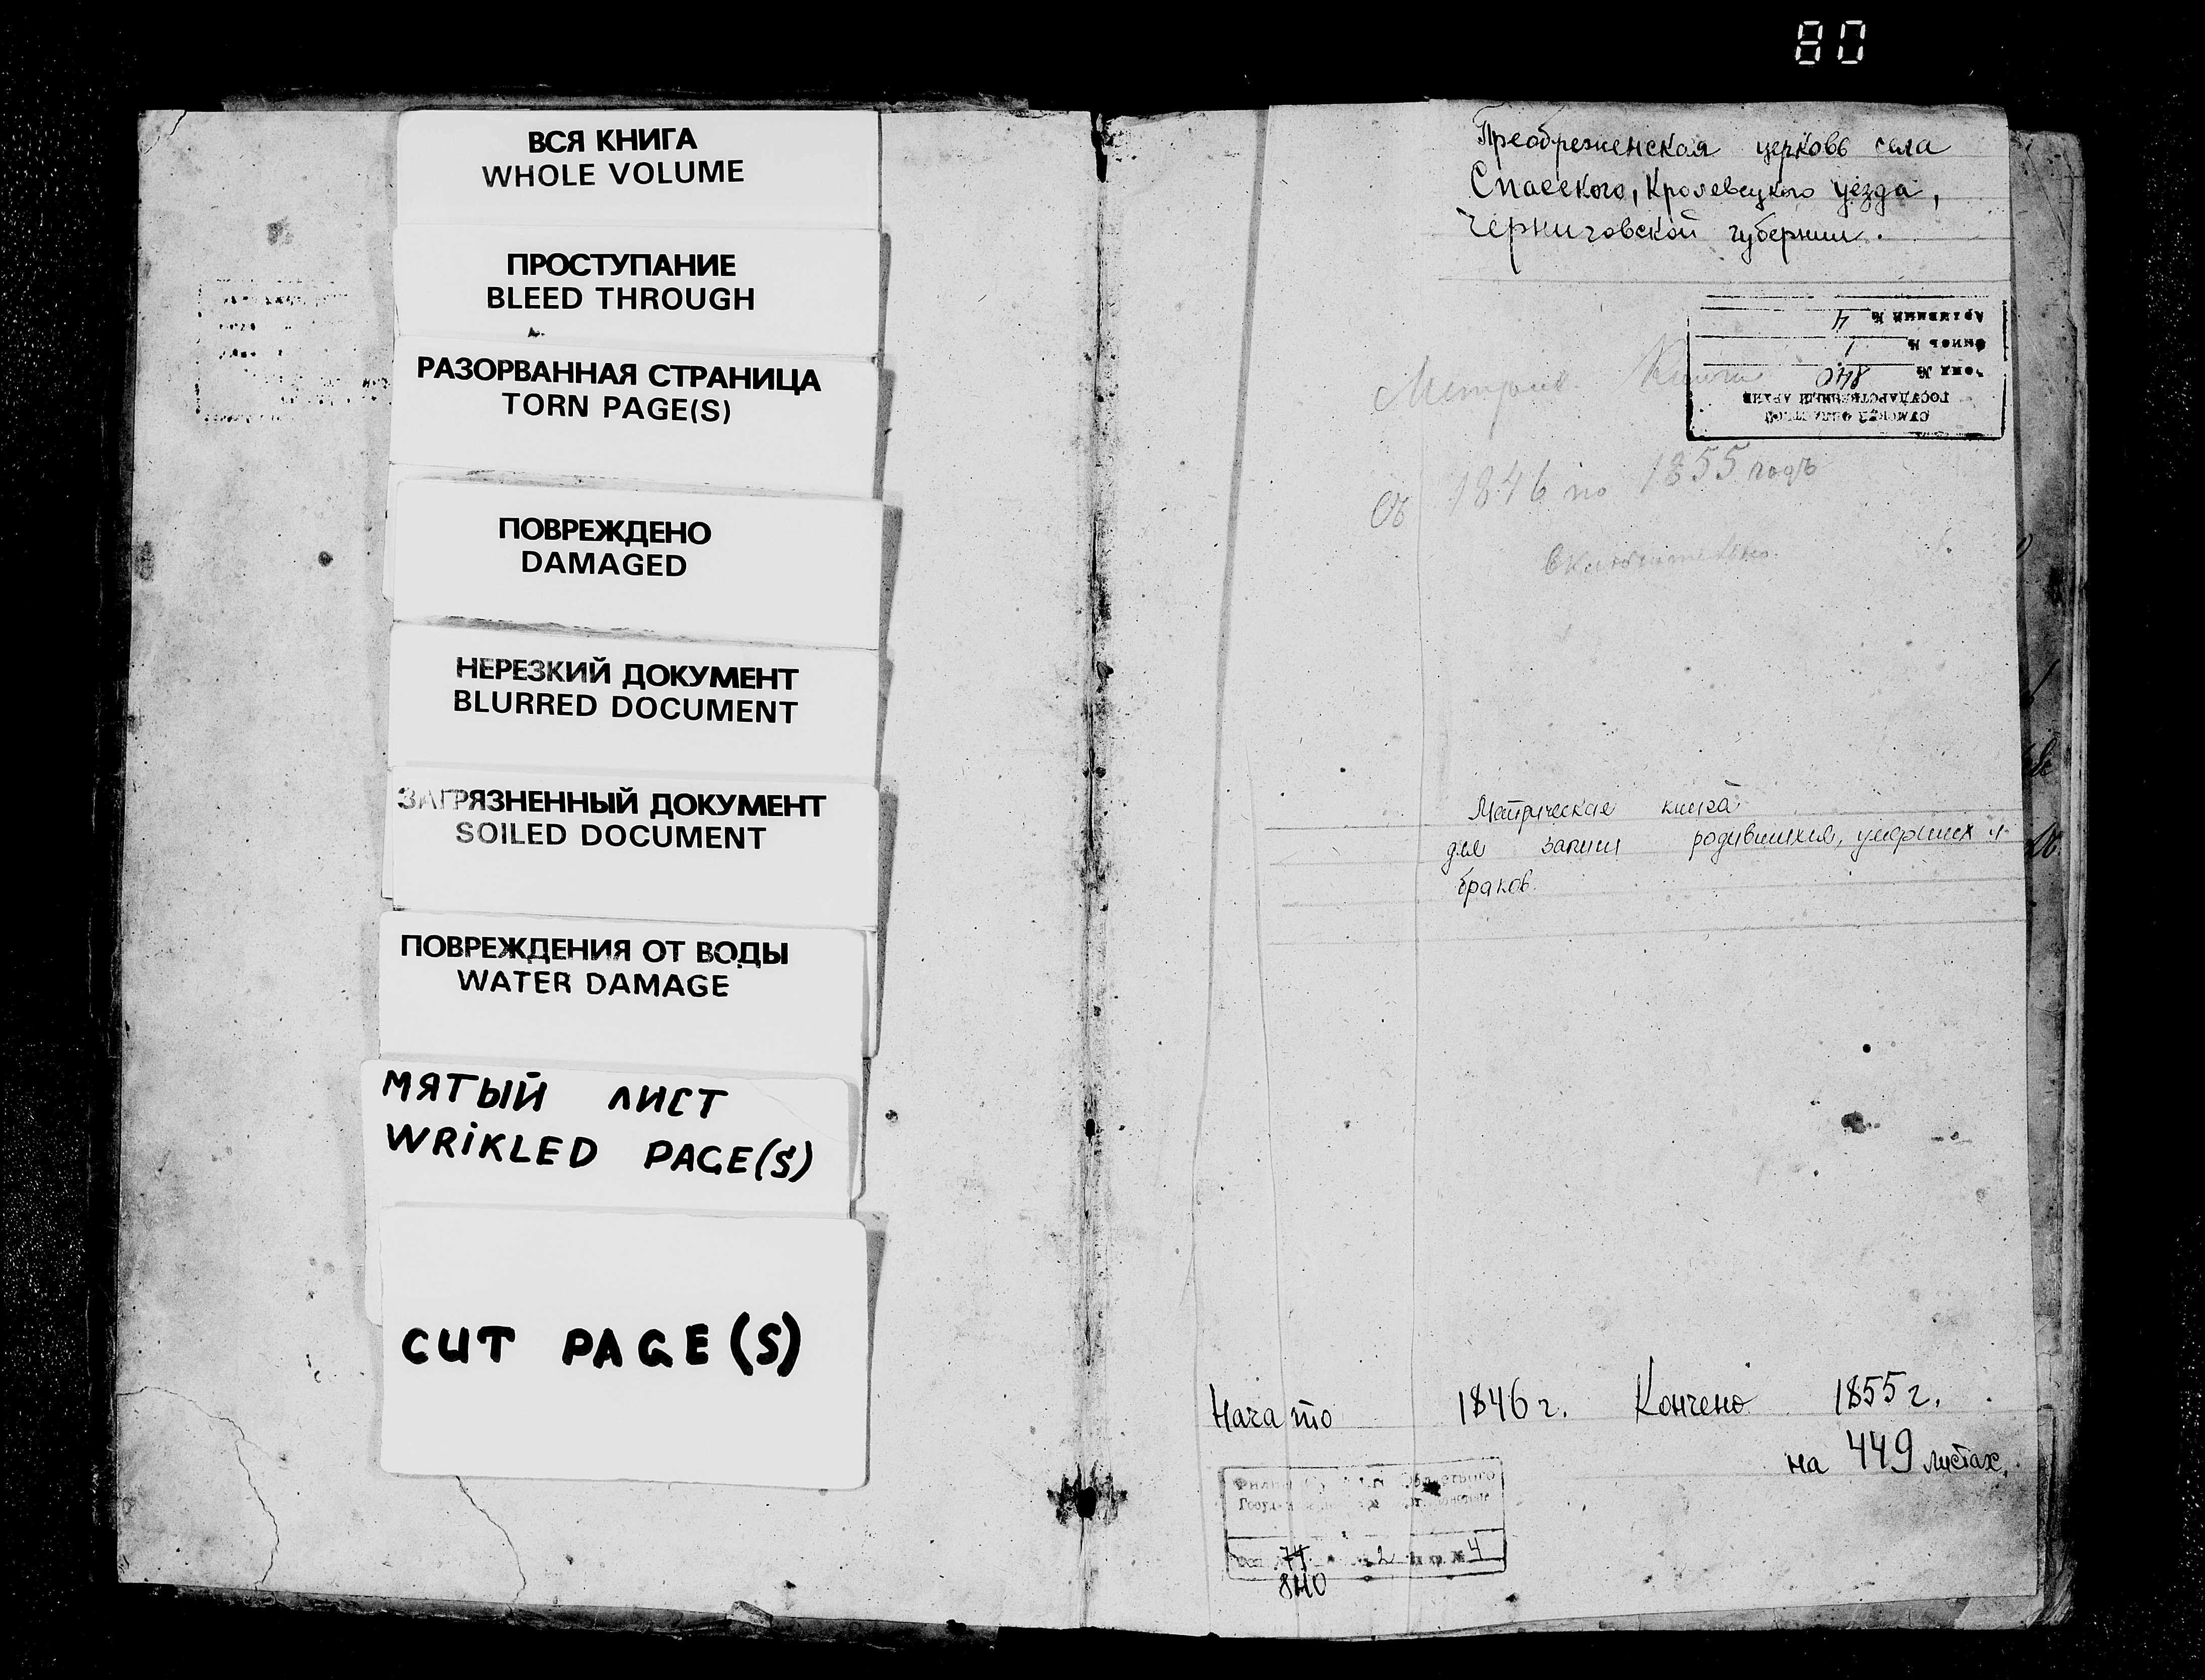 80
ВСЯ КНИГА
WHOLE VOLUME
ПРОСТУПАНИЕ
BLEED THROUGH
РАЗОРВАННАЯ СТРАНИЦА
TORN PAGE(S)
ПОВРЕЖДЕНО
DAMAGED
НЕРЕЗКИЙ ДОКУМЕНТ
BLURRED DOCUMENT
ЗАГРЯЗНЕННЫЙ ДОКУМЕНТ
SOILED DOCUMENT
ПОВРЕЖДЕНИЯ ОТ ВОДЫ
WATER DAMAGE
МЯТЫЙ ЛИСТ
WRIKLED PAGE(S)
CUT PAGE(S)
Преображенская церковь села
Спасского, Кролевецкого уезда,
Черниговской губернии.
СУМСКОЙ ОБЛАСТНОЙ
ГОСУДАРСТВЕННЫЙ АРХИВ
Фонд № 840
Опись № 1
Архивный № 4
Метрич. Книги
Съ 1846 по 1855 годъ
включительно.
Метрическая книга
для записи родившихся, умерших и
браков.
Начато 1846 г. Кончено 1855 г.
на 449 листах.
Филиал Областного
74 2 Ед. хр. № 4
840